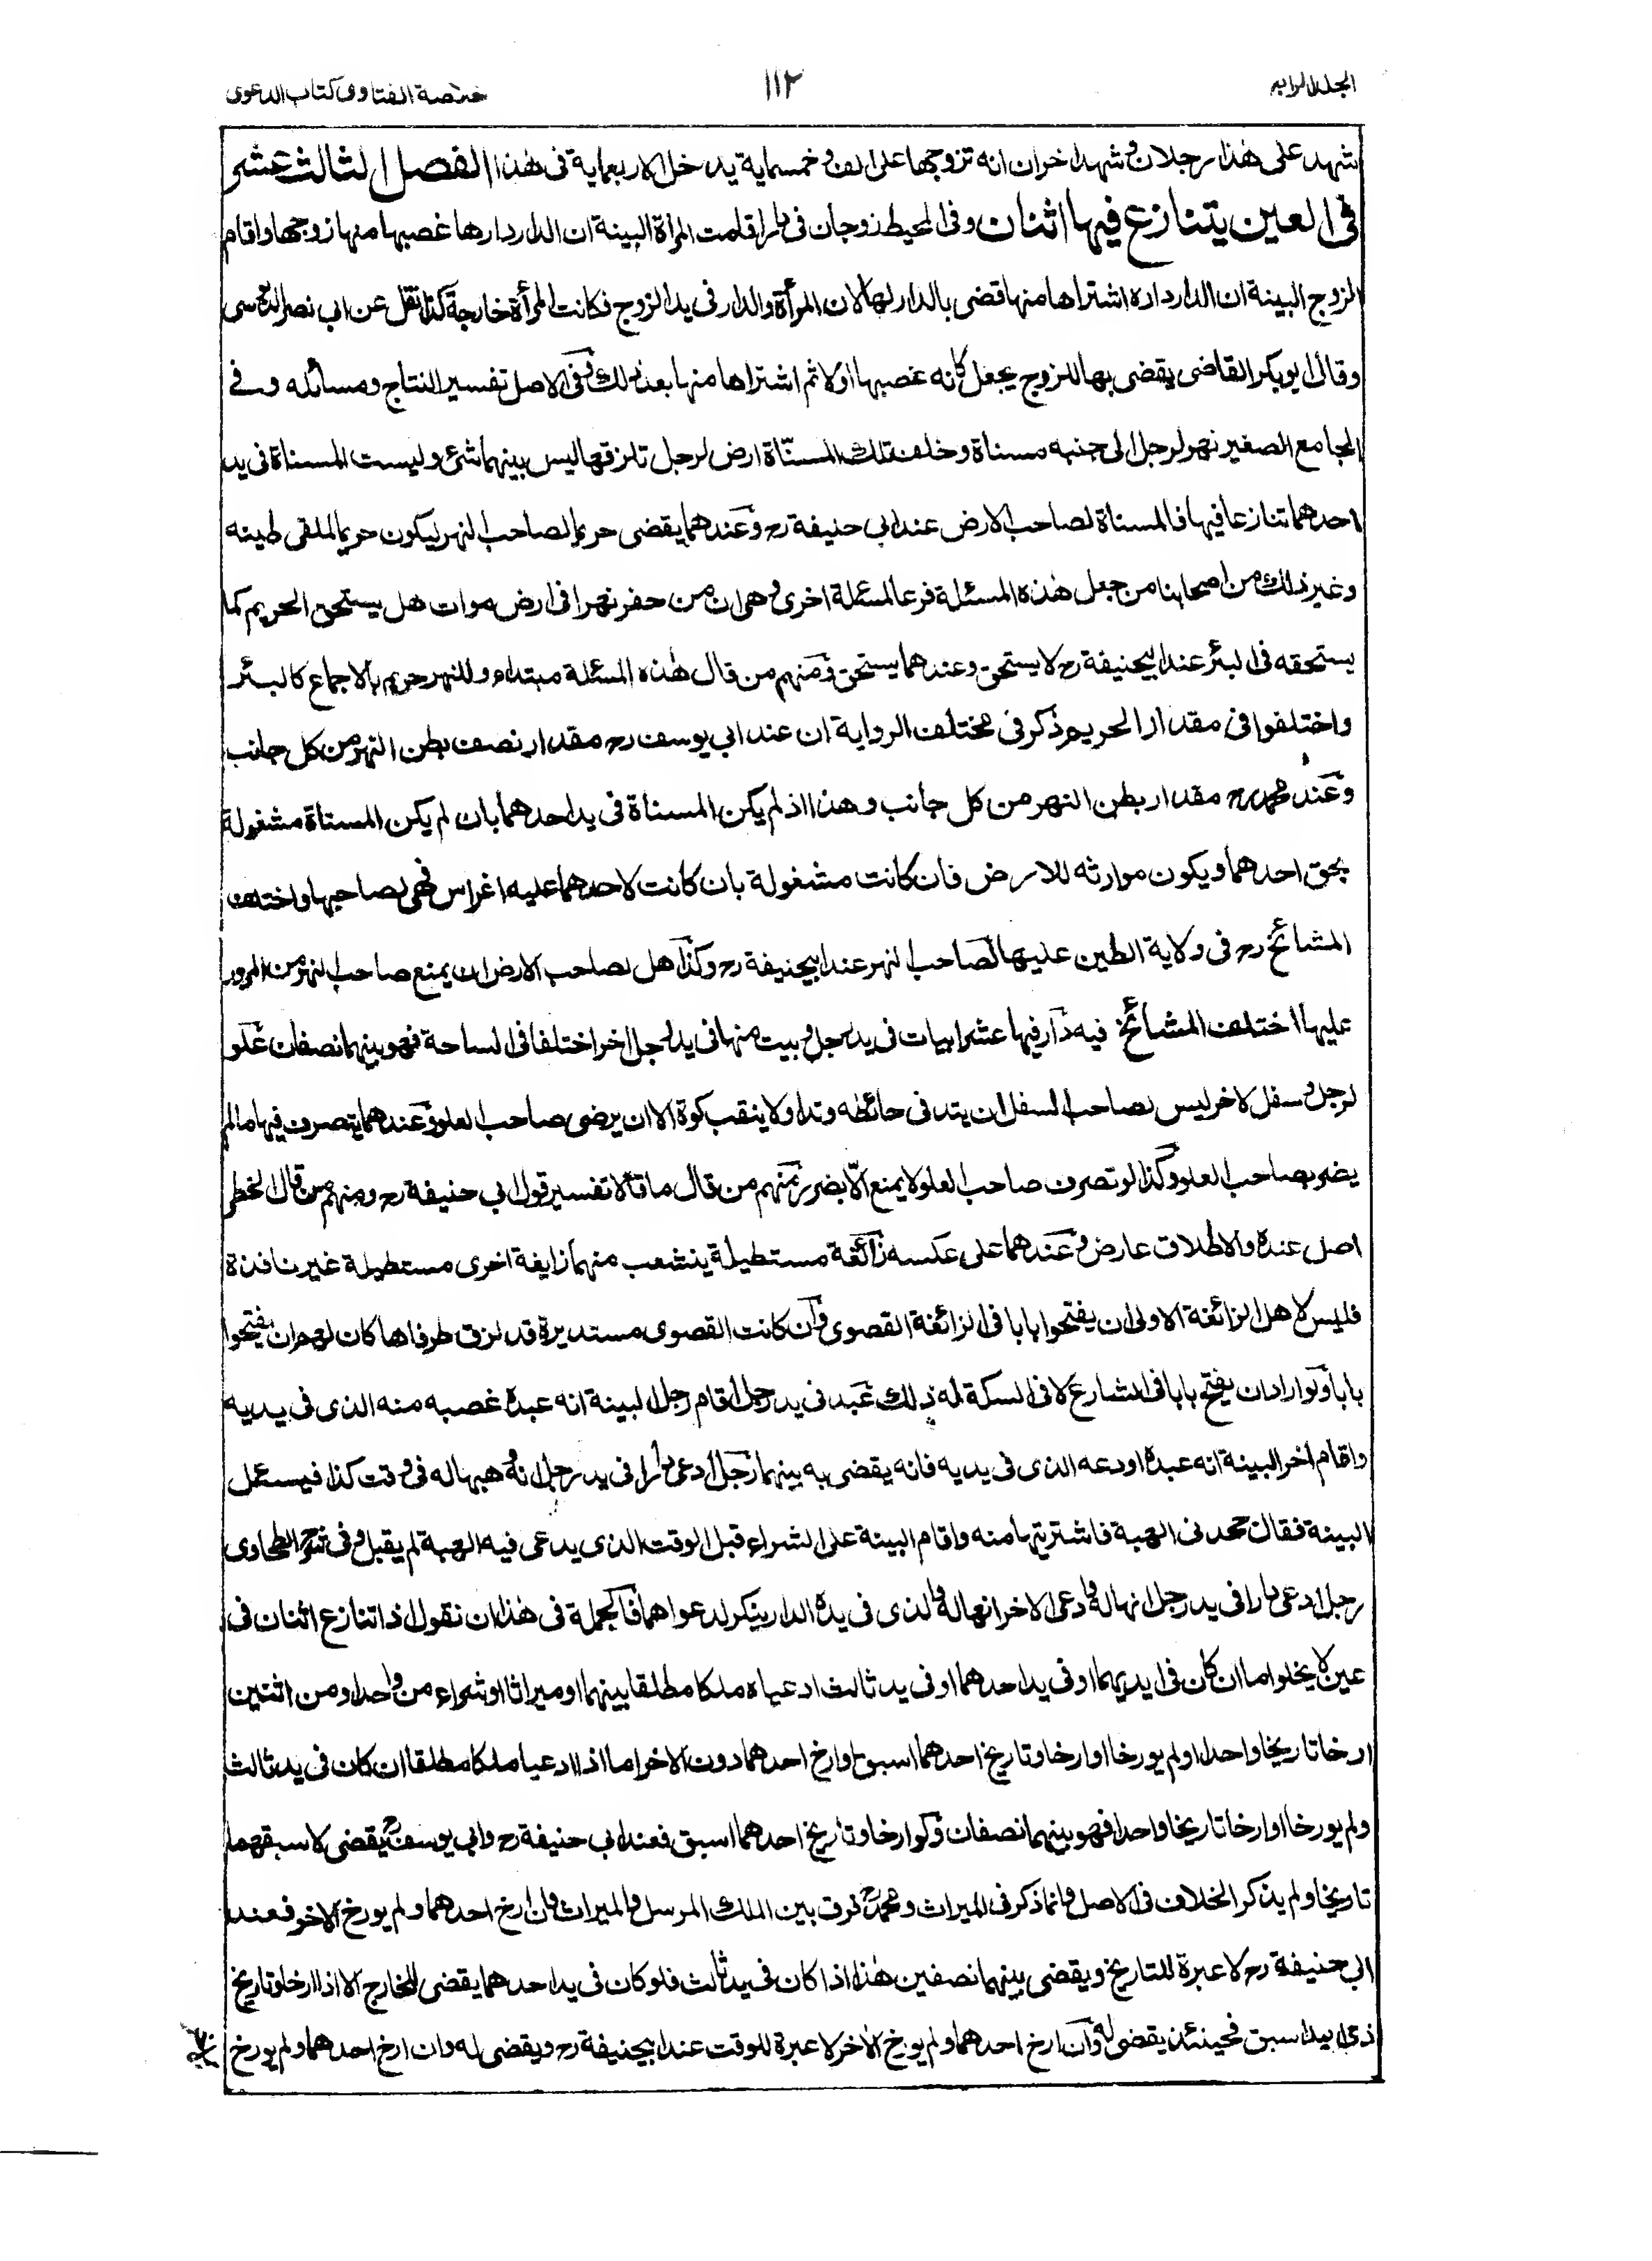 الجلد الرابع
١١٢
خلاصة الفتاوى كتاب الدعوى
شهد على هذا رجلان وشهد اخران انه تزوجها على الف وخمسماية يدخل الاربعماية فى هذا الفصل الثالث عشر
فى العين يتنازع فيها اثنان وفى المحيط زوجان فى دار اقامت المرأة البينة ان الدار دارها غصبها منها زوجها واقام
الزوج البينة ان الدار داره اشتراها منها قضى بالدار لها لان المرأة والدار فى يد الزوج فكانت المرأة خارجة كذا نقل عن ابى نصر
وقال ابو بكر القاضى يقضى بها للزوج يجعل كانه غصبها اولا ثم اشتراها منها بعد ذلك وفى الاصل تفسير النتاج ومسائله وفے
الجامع الصغير نهر لرجل الى جنبه مسناة وخلف تلك المسناة ارض لرجل تلزقها ليس بينهما شئ وليست المسناة فى يد
احدهما تنازعا فيها فالمسناة لصاحب الارض عند ابى حنيفة رح وعندهما يقضى حريما لصاحب النهر ليكون حريما لملقى طينه
وغير ذلك من اصحابنا من جعل هذه المسئلة فرعا لمسئلة اخرى وهى ان من حفر نهرا فى ارض موات هل يستحق الحريم كما
يستحقه فى البئر عند ابيحنيفة رح لا يستحق وعندهما يستحق ومنهم من قال هذه المسئلة مبتداء وللنهر حريم بالاجماع كالبئر
واختلفوا فى مقدار الحريم ذكر فى مختلف الرواية ان عند ابى يوسف رح مقدار نصف بطن النهر من كل جانب
وعند محمد رح مقدار بطن النهر من كل جانب وهذا اذ لم يكن المسناة فى يد احدهما بان لم يكن المسناة مشغولة
بحق احدهما ويكون موارثه للارض فان كانت مشغولة بان كانت لاحدهما عليه اغراس فهى لصاحبها واختلف
المشائخ رح فى ولاية الطين عليها لصاحب النهر عند ابيحنيفة رح وكذا هل لصاحب الارض ان يمنع صاحب النهر من المرور
عليها اختلف المشائخ فيه دار فيها عشر ابيات فى يد رجل وبيت منها فى يد رجل اخر اختلفا فى الساحة فهو بينهما نصفان علو
لرجل وسفل لاخر ليس لصاحب السفل ان يتد فى حائطه وتدا ولا ينقب كوة الا ان يرضى صاحب العلو وعندهما يتصرف فيها ما لم
يضر بصاحب العلو وكذا لو تصرف صاحب العلو لا يمنع الا بضرر فمنهم من قال ما قالا تفسير قول ابى حنيفة رح ومنهم من قال الحظر
اصل عنده والاطلاق عارض وعندهما على عكسه زائغة مستطيلة ينشعب منهما زايغة اخرى مستطيلة غير نافذة
فليس لاهل الزائغة الاولى ان يفتحوا بابا فى الزائغة القصوى وان كانت القصوى مستديرة قد لزق طرفاها كان لهم ان يفتحوا
بابا ولو اراد ان يفتح بابا فى الشارع لا فى السكة له ذلك عبد فى يد رجل اقام رجل البينة انه عبده غصبه منه الذى فى يديه
واقام اخر البينة انه عبده اودعه الذى فى يديه فانه يقضى به بينهما رجل ادعى دارا فى يد رجل انه وهبها له فى وقت كذا فيسئل
البينة فقال جحدنى الهبة فاشتريتها منه واقام البينة على الشراء قبل الوقت الذى يدعى فيه الهبة لم يقبل وفى شرح الطحاوى
رجل ادعى دارا فى يد رجل انها له وادعى الاخر انها له والذى فى يده الدار ينكر لدعواهما فالجملة فى هذا ان نقول اذا تنازع اثنان فى
عين لا يخلوا ما ان كان فى ايديهما او فى يد احدهما او فى يد ثالث ادعياه ملكا مطلقا بينهما او ميراثا او شراء من واحد او من اثنين
ارخا تاريخا واحدا او لم يورخا او ارخا وتاريخ احدهما اسبق او ارخ احدهما دون الاخر اما اذا ادعيا ملكا مطلقا ان كان فى يد ثالث
ولم يورخا او ارخا تاريخا واحدا فهو بينهما نصفان ولو ارخا وتاريخ احدهما اسبق فعند ابى حنيفة رح وابى يوسف رح يقضى لاسبقهما
تاريخا ولم يذكر الخلاف فى الاصل وانما ذكر فى الميراث ومحمد رح فرق بين الملك المرسل والميراث وان ارخ احدهما ولم يورخ الاخر فعند
ابى حنيفة رح لا عبرة للتاريخ ويقضى بينهما نصفين هذا اذا كان فى يد ثالث فلو كان فى يد احدهما يقضى للخارج الا اذا ارخا وتاريخ
ذى اليد اسبق فحينئذ يقضى له وان ارخ احدهما ولم يورخ الاخر لا عبرة للوقت عند ابيحنيفة رح ويقضى له وان ارخ احدهما ولم يورخ